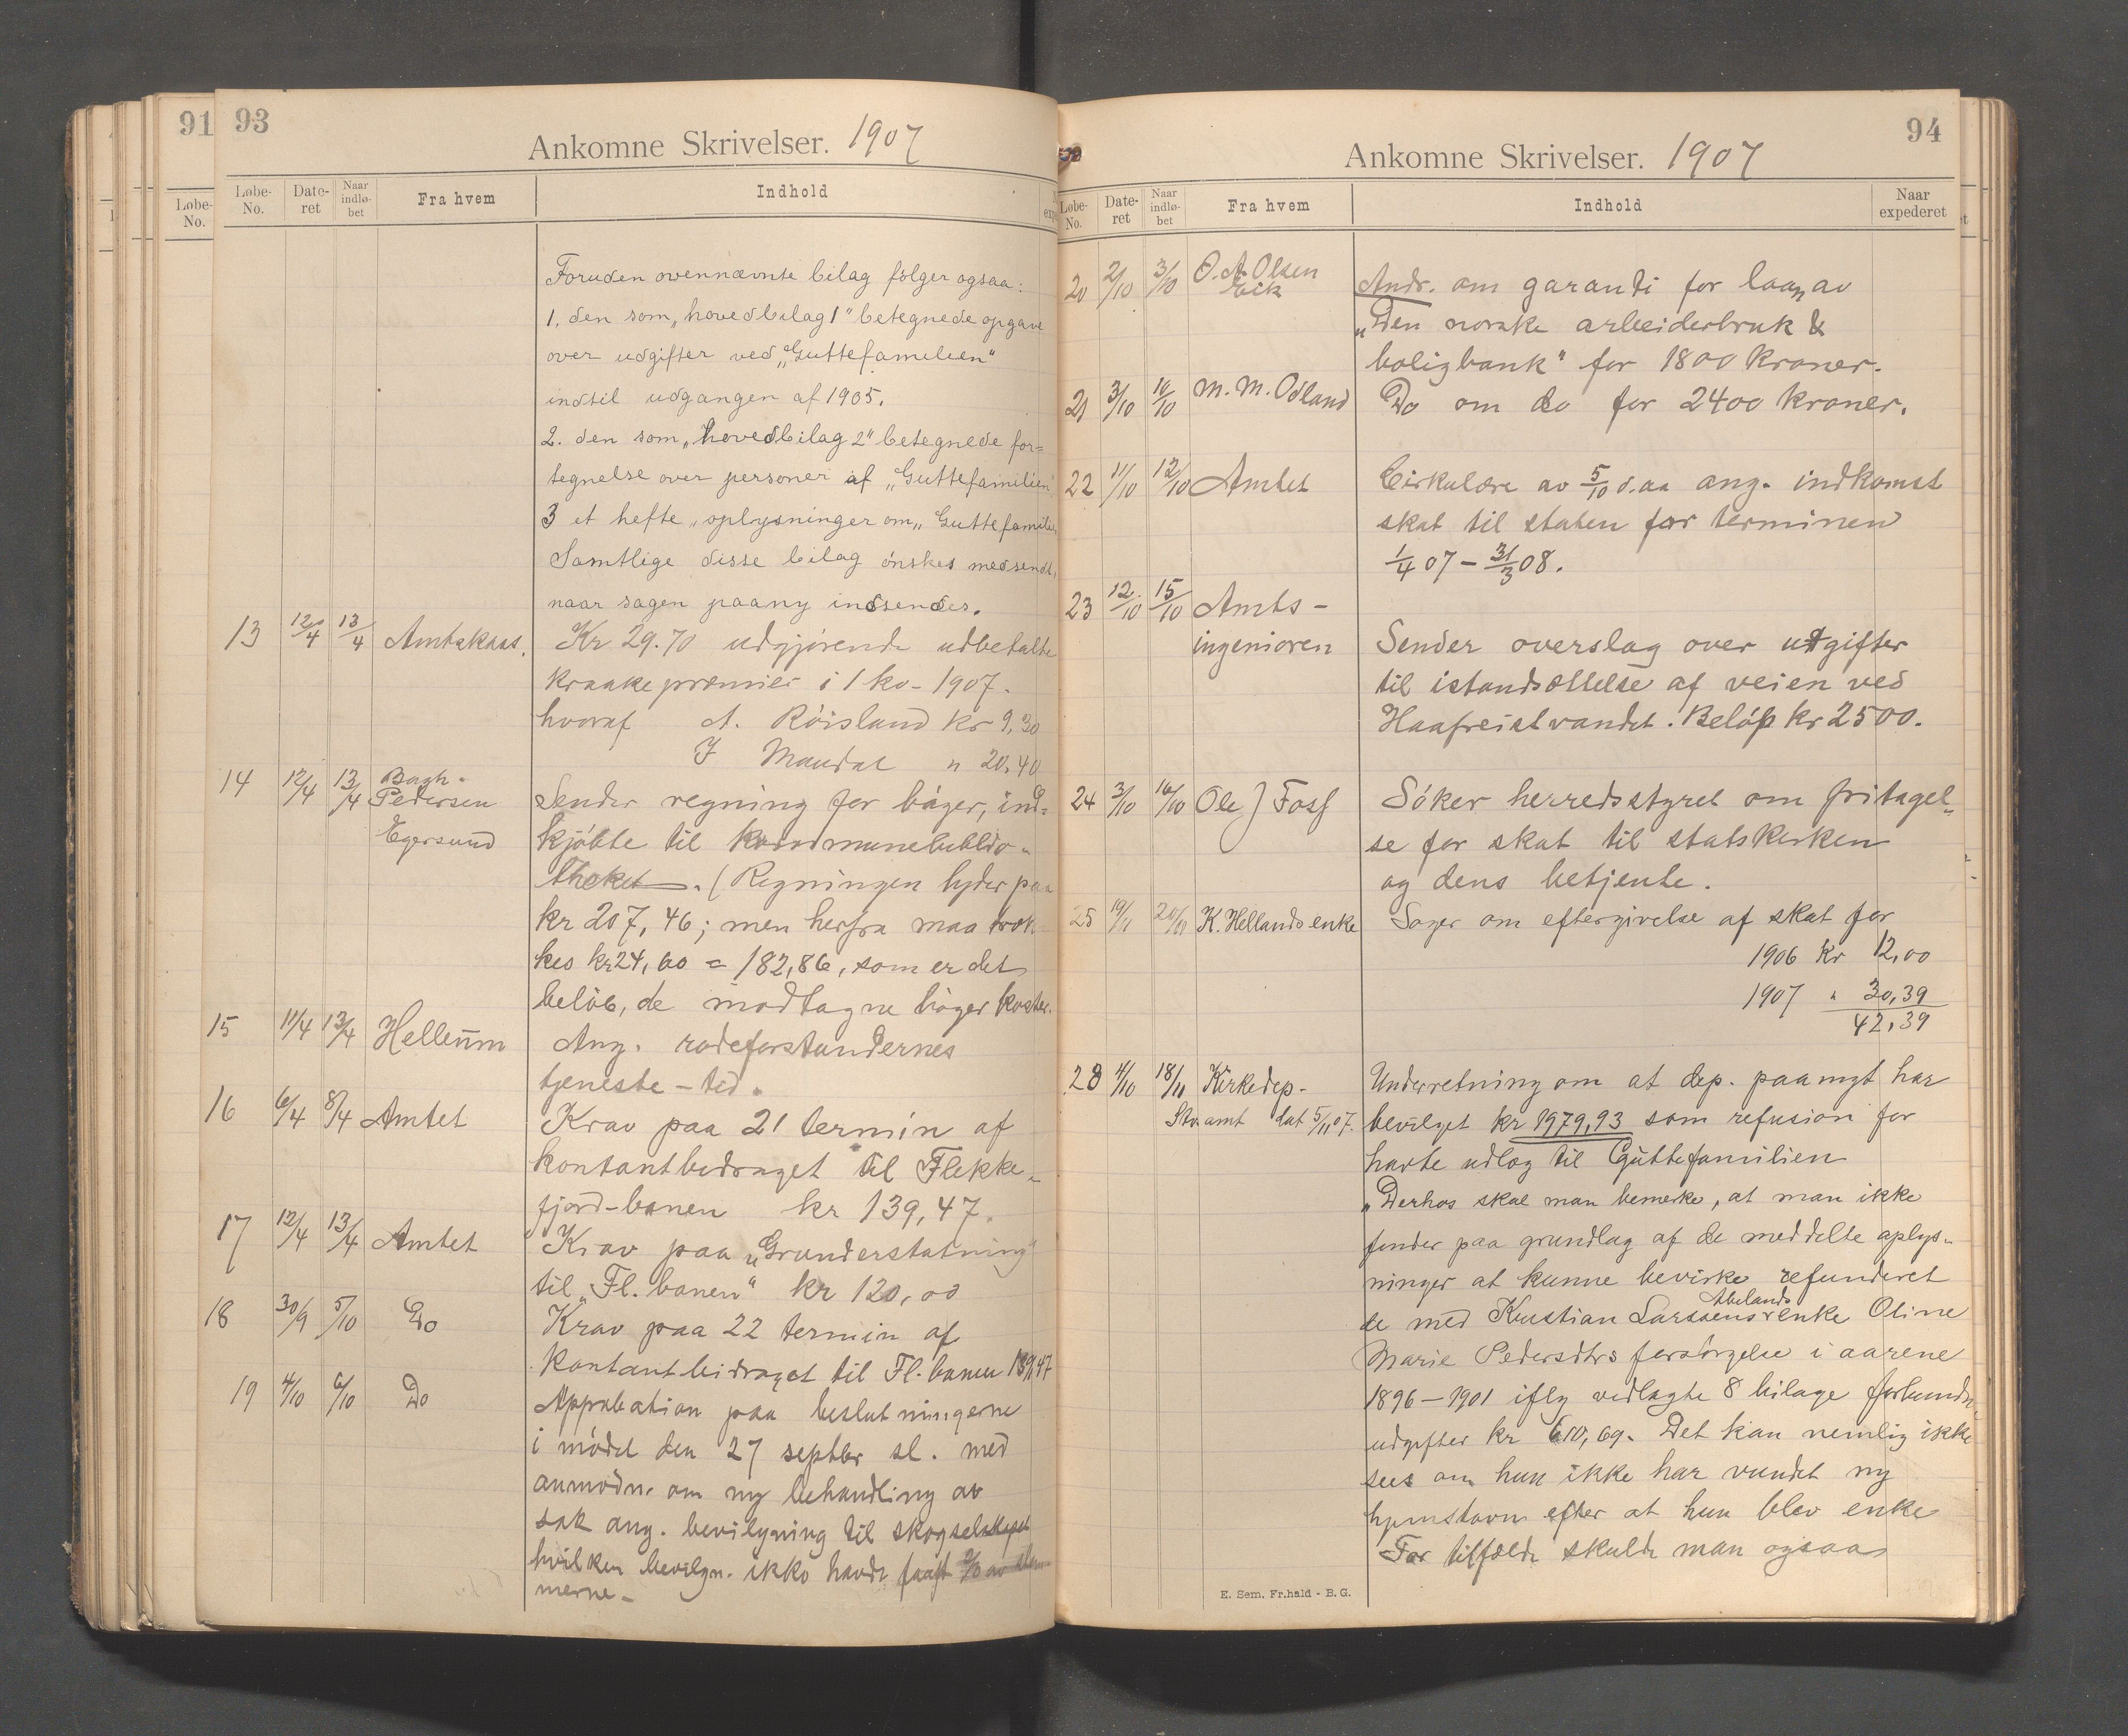 91
Løbe-
No.
93
Ankomne Skrivelser. 1907
Løbe-
No.
Date-
ret
Naar
indlø-
bet
Fra hvem
Indhold
Foruden ovennævnte bilag følger ogsaa:
1. den som „hovedbilag 1" betegnede opgave
over udgifter ved „Guttefamilien"
indtil udgangen af 1905.
2. den som „hovedbilag 2" betegnede for=
tegnelse over personer af „Guttefamilien"
3 et hefte „oplysninger om „Guttefamilien
Samtlige disse bilag ønskes medsendt,
naar sagen paany indsendes.
13 12/4 13/4 Amtskass. Kr 29.70 udgjørende udbetalte
kraakepræmier i 1 kv. 1907.
hvoraf A. Røisland kr 9,30
J Maudal " 20,40
14 12/4 13/4 Bagh.
Pedersen
Egersund
Sender regning for bøger, ind=
kjøbte til kommunebiblio-
theket. (Regningen lyder paa
kr 207,46; men herfra maa træk
kes kr 24,60 = 182,86, som er det
beløb, de modtagne bøger koster.
15 11/4 13/4 Hellem Ang. rodeforstandernes
tjeneste-tid.
16 6/4 8/4 Amtet Krav paa 21 termin af
kontantbidraget til Flekke-
fjord-banen kr 139,47.
17 12/4 13/4 Amtet Krav paa „Grunderstatning"
til „Fl. banen" kr 120,00
18 30/9 5/10 Do Krav paa 22 termin af
kontantbidraget til Fl. banen 139,47
19 4/10 6/10 Do Approbation paa beslutningerne
i mødet den 27 septbr sl. med
anmodn. om ny behandling av
sak ang. bevilgning til skogselskapet
hvilken bevilgn. ikke havde faaet 2/3 av stem
merne-
94
Ankomne Skrivelser. 1907
Løbe-
No.
Date-
ret
Naar
indlø-
bet
Fra hvem
Indhold
Naar
expederet
20 2/10 3/10 O. A. Olsen
Eik
Andr. om garanti for laan av
„Den norske arbeiderbruk &
boligbank" for 1800 kroner.
21 3/10 10/10 M. M. Odland Do om do for 2400 kroner.
22 11/10 12/10 Amtet Cirkulære av 5/10 d.aa ang. indkomst
skat til staten for terminen
1/4 07 – 31/3 08.
23 12/10 15/10 Amts-
ingeniøren Sender overslag over utgifter
til istandsættelse af veien ved
Haafreistvandet. Beløp kr 2500.
24 3/10 16/10 Ole J Foss Søker herredsstyret om fritagel-
se for skat til statskirken
og dens betjente.
25 19/11 20/11 K. Hellands enke Søger om eftergivelse af skat for
1906 kr 12,00
1907 " 30,39
42,39
28 4/10 18/11 Kirkedep.
Stv. amt dat 5/11 07.
Underretning om at dep. paa nyt har
bevilget kr 1979,93 som refusion for
havte udlæg til Guttefamilien
„Derhos skal man bemerke, at man ikke
finder paa grundlag af de meddelte oplys-
ninger at kunne bevirke refunderet
Abelands
de med Kristian Larsens enke Oline
Marie Pedersdtrs forsørgelse i aarene
1896–1901 iflg vedlagte 8 bilage forbundne
udgifter kr 610,69. Det kan nemlig ikke
sees om hun ikke har vundet ny
hjemstavn efter at hun blev enke
For tilfælde skulde man ogsaa
E. Sem, Fr.hald - B. G.